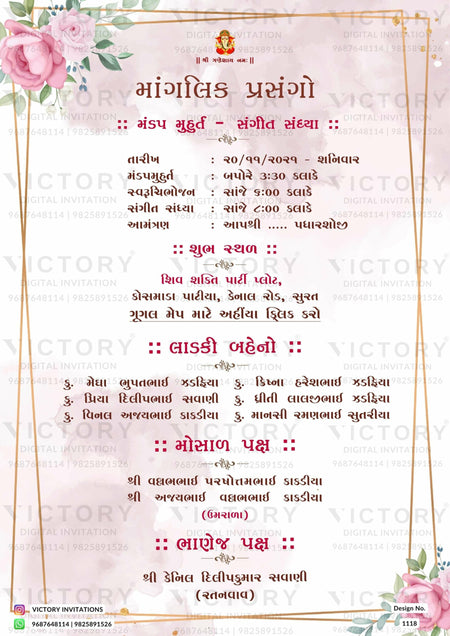 || શ્રી ગણેશાય નમઃ ||
માંગલિક પ્રસંગો
:: મંડપ મુહુર્ત - સંગીત સંધ્યા ::
તારીખ : ૨૦/૧૧/૨૦૨૧ - શનિવાર
મંડપમુહુર્ત : બપોરે ૩:૩૦ કલાકે
સ્વરૂચિભોજન : સાંજે ૬:૦૦ કલાકે
સંગીત સંધ્યા : સાંજે ૮:૦૦ કલાકે
આમંત્રણ : આપશ્રી ..... પધારશોજી
:: શુભ સ્થળ ::
શિવ શક્તિ પાર્ટી પ્લોટ,
કોસમાડા પાટીયા, કેનાલ રોડ, સુરત
ગૂગલ મેપ માટે અહીંયા ક્લિક કરો
:: લાડકી બહેનો ::
કુ. મેઘા ભુપતભાઈ ઝડફિયા કુ. ક્રિષ્ના હરેશભાઈ ઝડફિયા
કુ. પ્રિયા દિલીપભાઈ સવાણી કુ. ધ્રીતી લાલજીભાઈ ઝડફિયા
કુ. વિનલ અજયભાઈ કાકડીયા કુ. માનસી રમણભાઈ સુતરીયા
:: મોસાળ પક્ષ ::
શ્રી વલ્લભભાઈ પરષોતમભાઈ કાકડીયા
શ્રી અજયભાઈ વલ્લભભાઈ કાકડીયા
(ઉમરાળા)
:: ભાણેજ પક્ષ ::
શ્રી કેનિલ દિલીપકુમાર સવાણી
(રતનવાવ)
VICTORY INVITATIONS
9687648114 | 9825891526
Design No.
1118
VICTORY
DIGITAL INVITATION
9687648114 | 9825891526